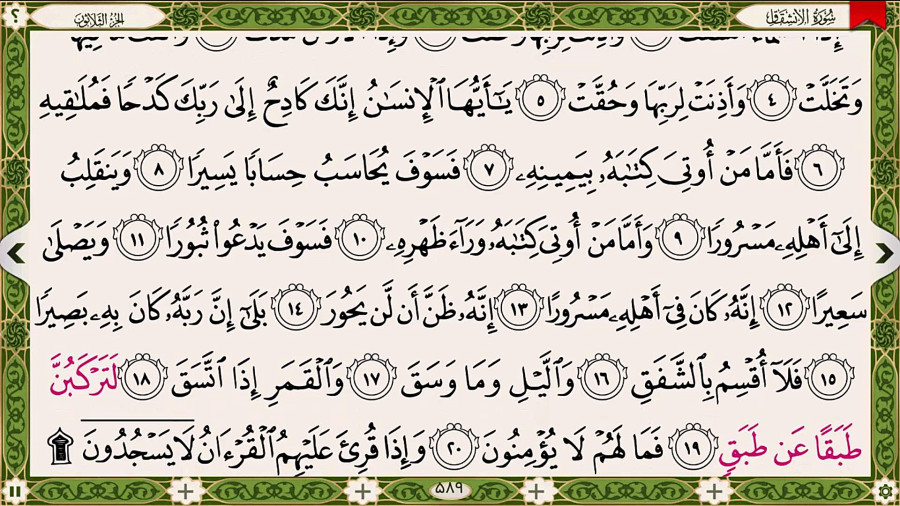 سُورَةُ الِانْشِقَاقِ
الجُزءُ الثَّلَاثُونَ
؟
وَتَخَلَّتْ ٤ وَأَذِنَتْ لِرَبِّهَا وَحُقَّتْ ٥ يَـٰٓأَيُّهَا ٱلْإِنسَـٰنُ إِنَّكَ كَادِحٌ إِلَىٰ رَبِّكَ كَدْحًا فَمُلَـٰقِيهِ
٦ فَأَمَّا مَنْ أُوتِىَ كِتَـٰبَهُۥ بِيَمِينِهِۦ ٧ فَسَوْفَ يُحَاسَبُ حِسَابًا يَسِيرًا ٨ وَيَنقَلِبُ
إِلَىٰٓ أَهْلِهِۦ مَسْرُورًا ٩ وَأَمَّا مَنْ أُوتِىَ كِتَـٰبَهُۥ وَرَآءَ ظَهْرِهِۦ ١٠ فَسَوْفَ يَدْعُوا۟ ثُبُورًا ١١ وَيَصْلَىٰ
سَعِيرًا ١٢ إِنَّهُۥ كَانَ فِىٓ أَهْلِهِۦ مَسْرُورًا ١٣ إِنَّهُۥ ظَنَّ أَن لَّن يَحُورَ ١٤ بَلَىٰٓ إِنَّ رَبَّهُۥ كَانَ بِهِۦ بَصِيرًا
١٥ فَلَآ أُقْسِمُ بِٱلشَّفَقِ ١٦ وَٱلَّيْلِ وَمَا وَسَقَ ١٧ وَٱلْقَمَرِ إِذَا ٱتَّسَقَ ١٨ لَتَرْكَبُنَّ
طَبَقًا عَن طَبَقٍ ١٩ فَمَا لَهُمْ لَا يُؤْمِنُونَ ٢٠ وَإِذَا قُرِئَ عَلَيْهِمُ ٱلْقُرْءَانُ لَا يَسْجُدُونَ ۩
٥٨٩